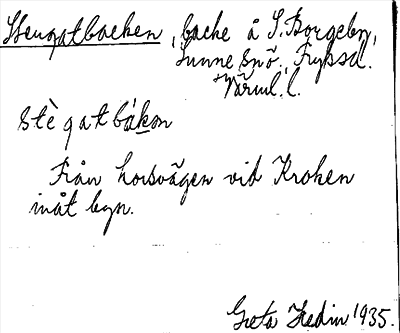 Stengatbacken, backe å S. Borgeby,
Sunne snö., Fryksd.
Värml. l.
stègatbákən
Från landsvägen vid Kroken
inåt byn.
Greta Hedin 1935.